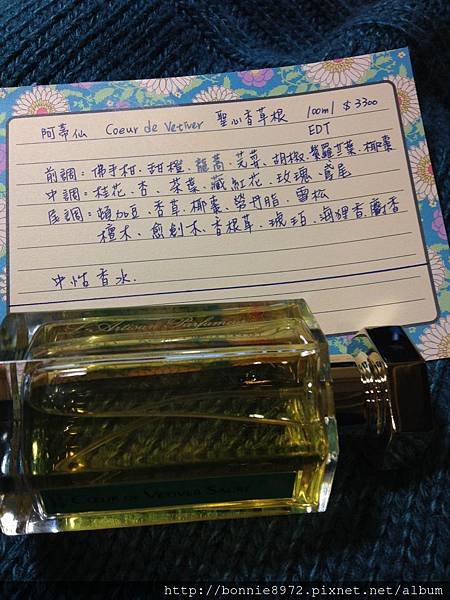 阿蒂仙 Coeur de Vetiver 聖心香草根 100ml $3300
EDT
前調=佛手柑、甜橙、龍蒿、芫荽、胡椒、紫羅蘭葉、椰棗
中調=桂花、杏、茶葉、藏紅花、玫瑰、鳶尾
底調=頓加豆、香草、椰棗、勞丹脂、雪松
檀木、癒創木、香根草、琥珀、海狸香、麝香
中性香水.
L'Artisan Parfumeur
COEUR DE VETIVER SACRÉ
http://bonnie8972.pixnet.net/album